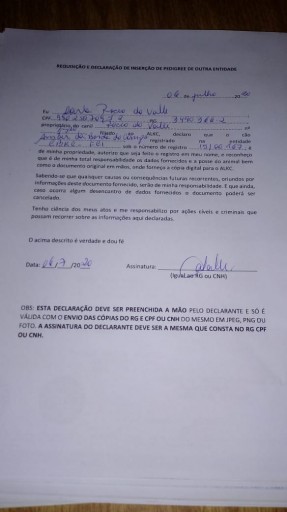 REQUISIÇÃO E DECLARAÇÃO DE INSERÇÃO DE PEDIGREE DE OUTRA ENTIDADE
06 de julho
Eu
CPF
proprietário do canil do Valle
filiado ao ALKC, declaro que o cão
registrado na entidade
sob o número de registro
de minha propriedade, autorizo que seja feito o registro em meu nome, e reconheço
que é de minha total responsabilidade os dados fornecidos e a posse do animal bem
como o documento original em mãos, onde forneço a cópia digital para o ALKC.
Sabendo-se que quaisquer causas ou consequências futuras recorrentes, oriundos por
informações deste documento fornecido, serão de minha responsabilidade. E que ainda,
caso ocorra algum desencontro de dados fornecidos o documento poderá ser
cancelado.
Tenho ciência dos meus atos e me responsabilizo por ações cíveis e criminais que
possam recorrer sobre as informações aqui declaradas.
O acima descrito é verdade e dou fé
Data: 06/7 /2020 Assinatura:
(Igual ao RG ou CNH)
OBS: ESTA DECLARAÇÃO DEVE SER PREENCHIDA A MÃO PELO DECLARANTE E SÓ É
VÁLIDA COM O ENVIO DAS CÓPIAS DO RG E CPF OU CNH DO MESMO EM JPEG, PNG OU
FOTO. A ASSINATURA DO DECLARANTE DEVE SER A MESMA QUE CONSTA NO RG CPF
OU CNH.